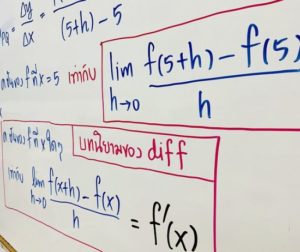 m_PQ = Δy/Δx = / (5+h) - 5
f ที่ x = 5 เท่ากับ
lim h→0 f(5+h) - f(5) / h
f ที่ x ใดๆ
บทนิยามของ diff
เท่ากับ lim h→0 f(x+h) - f(x) / h = f'(x)